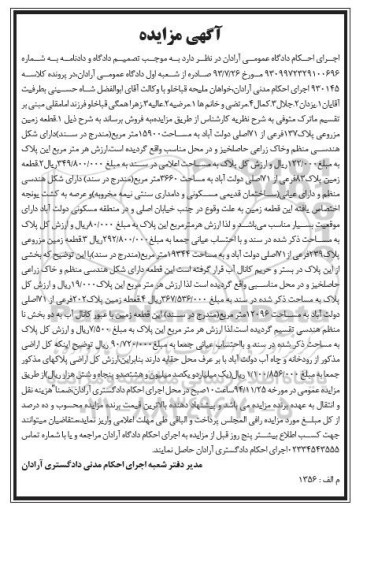 آگهی مزایده
اجرای احکام دادگاه عمومی آرادان در نظر دارد به موجب تصمیم دادگاه و دادنامه به شماره
۹۳۰۹۹۷۲۳۲۹۱۰۰۶۹۶ مورخ ۹۳/۷/۲۶ صادره از شعبه اول دادگاه عمومی آرادان،در پرونده کلاسه
۹۳۰۱۴۵ اجرای احکام مدنی آرادان،خواهان ملیحه قباخلو با وکالت آقای ابوالفضل شاه حسینی بطرفیت
آقایان۱.یزدان۲.جلال۳.کمال۴.مرتضی و خانم ها ۱.مرضیه۲.عالیه۳.زهرا همگی قباخلو فرزند امامقلی مبنی بر
تقسیم ماترک متوفی به شرح نظریه کارشناس از طریق مزایده،به فروش برساند به شرح ذیل ۱.قطعه زمین
مزروعی پلاک۱۳۷فرعی از ۷۱اصلی دولت آباد به مساحت۱۵۹۰۰متر مربع(مندرج در سند)دارای شکل
هندسی منظم وخاک زراعی حاصلخیز و در محل مناسب واقع گردیده است،ارزش هر متر مربع این پلاک
به مبلغ۲۲/۰۰۰ریال و ارزش کل پلاک به مساحت اعلامی در سند به مبلغ ۳۴۹/۸۰۰/۰۰۰ریال۲.قطعه
زمین پلاک۸۳فرعی از ۷۱اصلی دولت آباد به مساحت۳۶۶۰متر مربع(مندرج در سند) دارای شکل هندسی
منظم و دارای عیانی(ساختمان قدیمی مسکونی و دامداری سنتی نیمه مخروبه)و عرصه به کشت یونجه
اختصاص یافته این قطعه زمین به علت وقوع در جنب خیابان اصلی و در منطقه مسکونی دولت آباد دارای
موقعیت بسیار مناسب می‌باشد و لذا ارزش هرمترمربع این پلاک به مبلغ۸۰/۰۰۰ریال و ارزش کل پلاک
به مساحت ذکر شده در سند و با احتساب عیانی جمعا به مبلغ ۲۹۲/۸۰۰/۰۰۰ریال ۳.قطعه زمین مزروعی
پلاک۲۳۹فرعی از۷۱اصلی دولت آباد و به مساحت ۱۹۳۴۴متر مربع(مندرج در سند)با این توضیح که بخشی
از این پلاک در بستر و حریم کانال آب قرار گرفته است این قطعه دارای شکل هندسی منظم و خاک زراعی
حاصلخیز و در محل مناسبی واقع گردیده است لذا ارزش هر متر مربع این پلاک۱۹/۰۰۰ریال و ارزش کل
پلاک به مساحت ذکر شده در سند به مبلغ ۳۶۷/۵۳۶/۰۰۰ریال ۴.قطعه زمین پلاک۲۰۲فرعی از ۷۱اصلی
دولت آباد به مساحت ۱۲۰۹۶متر مربع(مندرج در سند) این قطعه زمین با عبور کانال آب به دو بخش نا
منظم هندسی تقسیم گردیده است.لذا ارزش هر متر مربع این پلاک به مبلغ۷/۵۰۰ریال و ارزش کل پلاک
به مساحت ذکر شده در سند و بااحتساب عیانی جمعا به مبلغ ۹۰/۷۲۰/۰۰۰ریال توضیح اینکه کل اراضی
مذکور از رودخانه و چاه آب دولت آباد با بر عرف محل حقابه دارند بنابراین،ارزش کل اراضی پلاکهای مذکور
جمعا به مبلغ ۱/۱۰۰/۸۵۶/۰۰۰ ریال(یک میلیاردو یکصد میلیون و هشتصدو پنجاه و شش هزار ریال)از طریق
مزایده عمومی در مورخه ۹۴/۱۱/۲۵ساعت ۱۰صبح در محل اجرای احکام دادگستری آرادان،ضمنا هزینه نقل
و انتقال به عهده برنده مزایده می باشد و پیشنهاد دهنده بالاترین قیمت برنده مزایده محسوب و ده درصد
از کل مبلغ مورد مزایده را فی المجلس پرداخت و الباقی طی مهلت اعلامی واریز نماید،متقاضیان میتوانند
جهت کسب اطلاع بیشتر پنج روز قبل از مزایده به اجرای احکام دادگاه آرادان مراجعه و یا با شماره تماس
۰۲۳۳۴۵۴۳۵۵۵اجرای احکام دادگستری آرادان حاصل نمایند.
مدیر دفتر شعبه اجرای احکام مدنی دادگستری آرادان
م الف : ۱۳۵۶